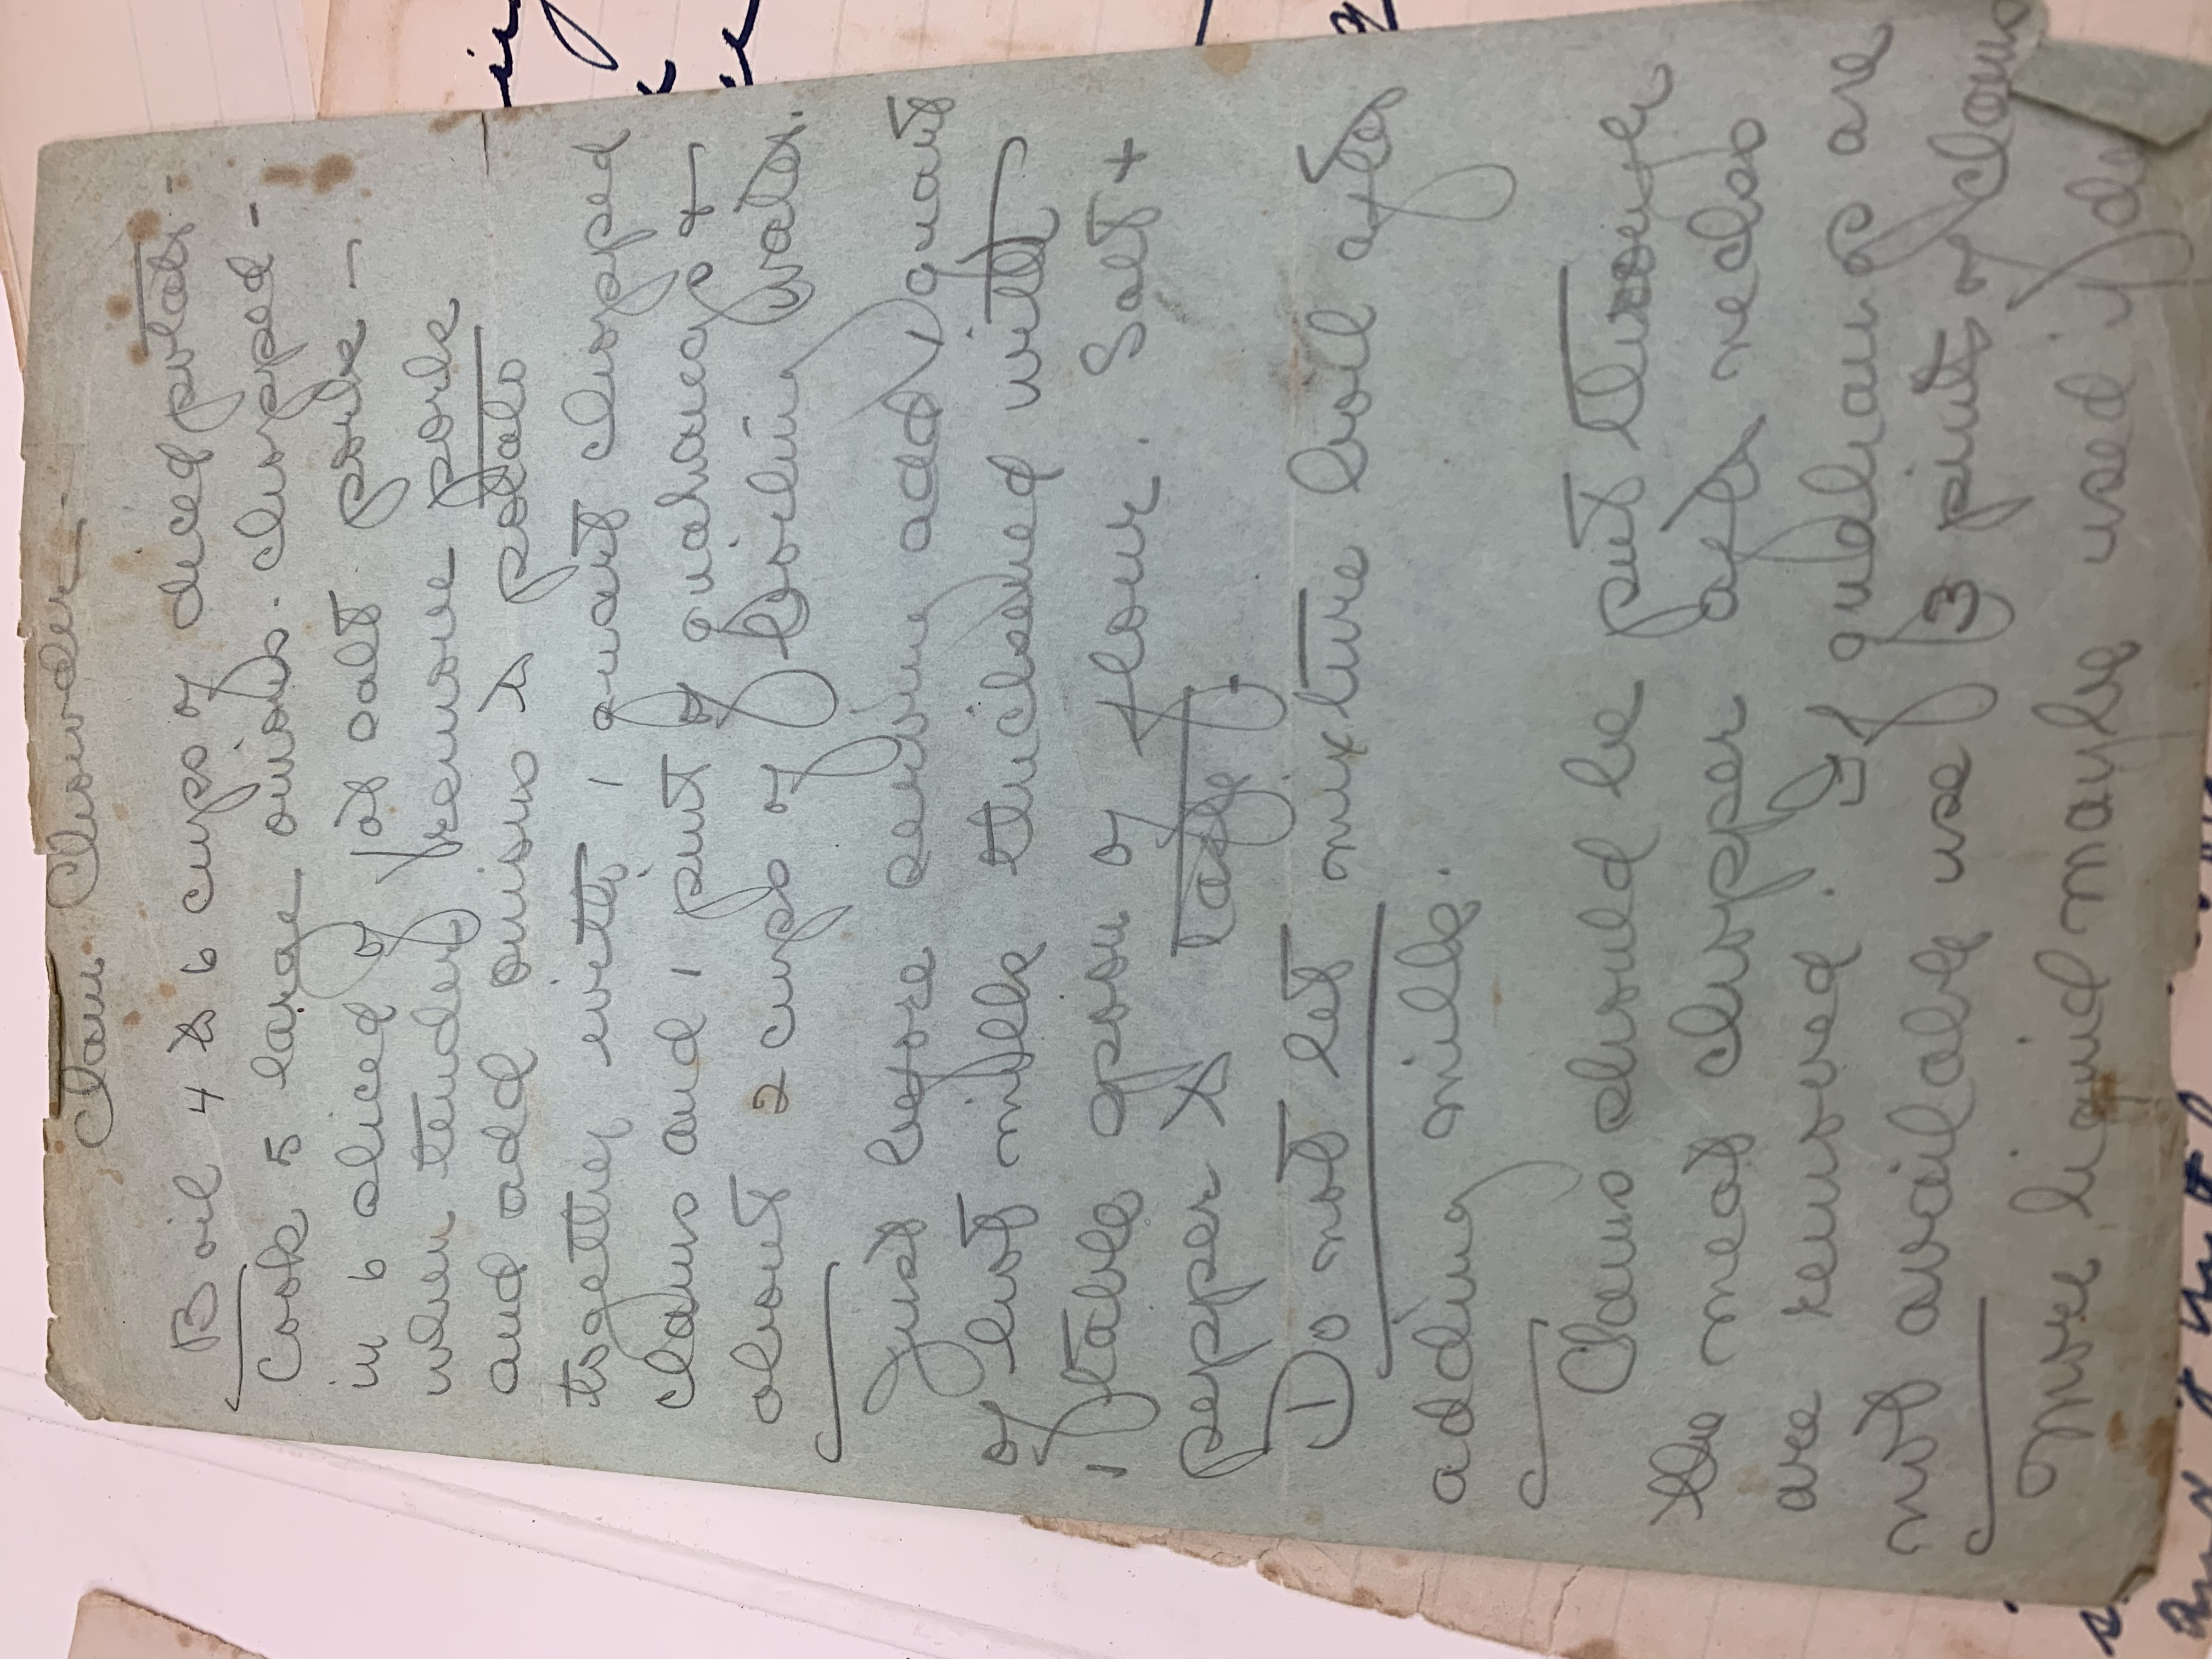 Clam Chowder -
Boil 4 to 6 cups of diced potato -
Cook 5 large onions - chopped -
in 6 sliced of fat salt pork -
when tender remove pork
and add onions to potato
together with 1 quart chopped
clams and 1 pint of quahaugs +
about 2 cups of boiling water.
Just before serving add 1 quart
of hot milk thickened with
1 table spoon of flour. Salt +
pepper to taste -
Do not let mixture boil after
adding milk.
Clams should be put through
the meat chopper after necks
are removed. If quahaugs are
not available use 3 pints of clams
More liquid maybe used if de